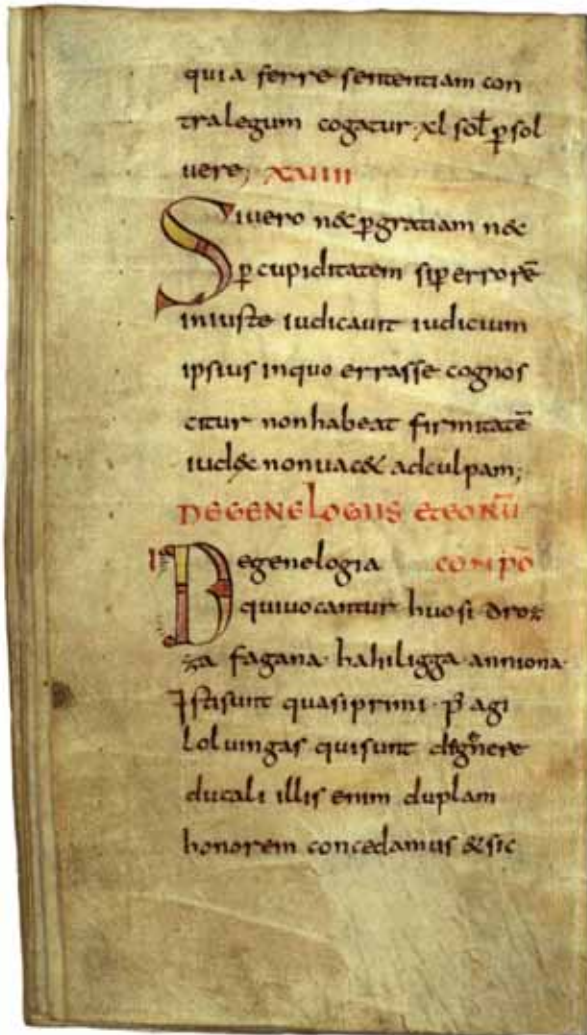 quia ferre sententiam con
tralegum cogatur · xl sol̄ p̱ sol
uere; XVIIII
Siuero nec p̱gratiam nec
p̱ cupiditatem s; p̱ errorē
iniuste iudicauit iudicium
ipsius inquo errasse cognos
citur nonhabeat firmitatē
iudex nonuacet adculpam;
DEGENELOGIIS ET EORŪ
Degenelogia COMPŌ
quiuocantur huosi · droz
za fagana · hahiligga · anniona ·
Istisunt quasiprimi · p̄ agi
loluingas quisunt degenere
ducali illis enim duplam
honorem concedamus &sic